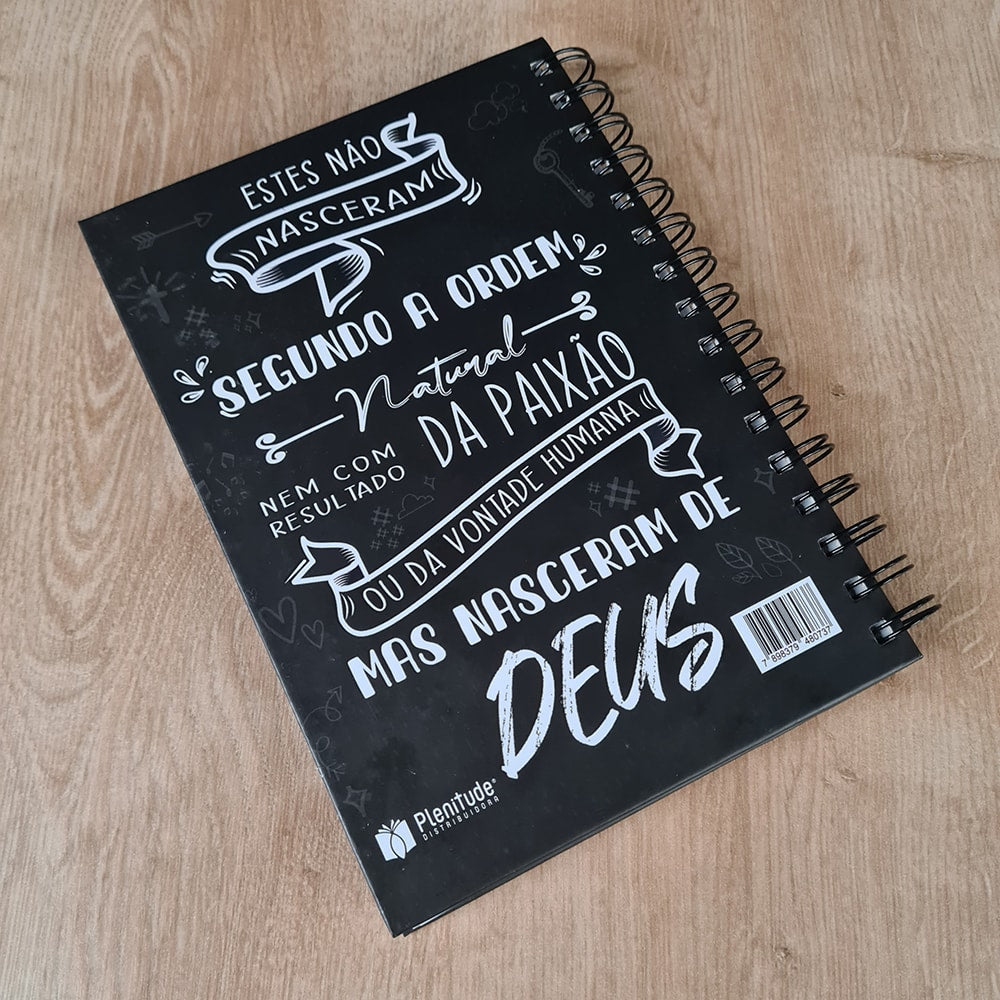 ESTES NÃO
NASCERAM
SEGUNDO A ORDEM
Natural
DA PAIXÃO
NEM COM
RESULTADO
OU DA VONTADE HUMANA
MAS NASCERAM DE
DEUS
7 898379 480737
Plenitude®
DISTRIBUIDORA